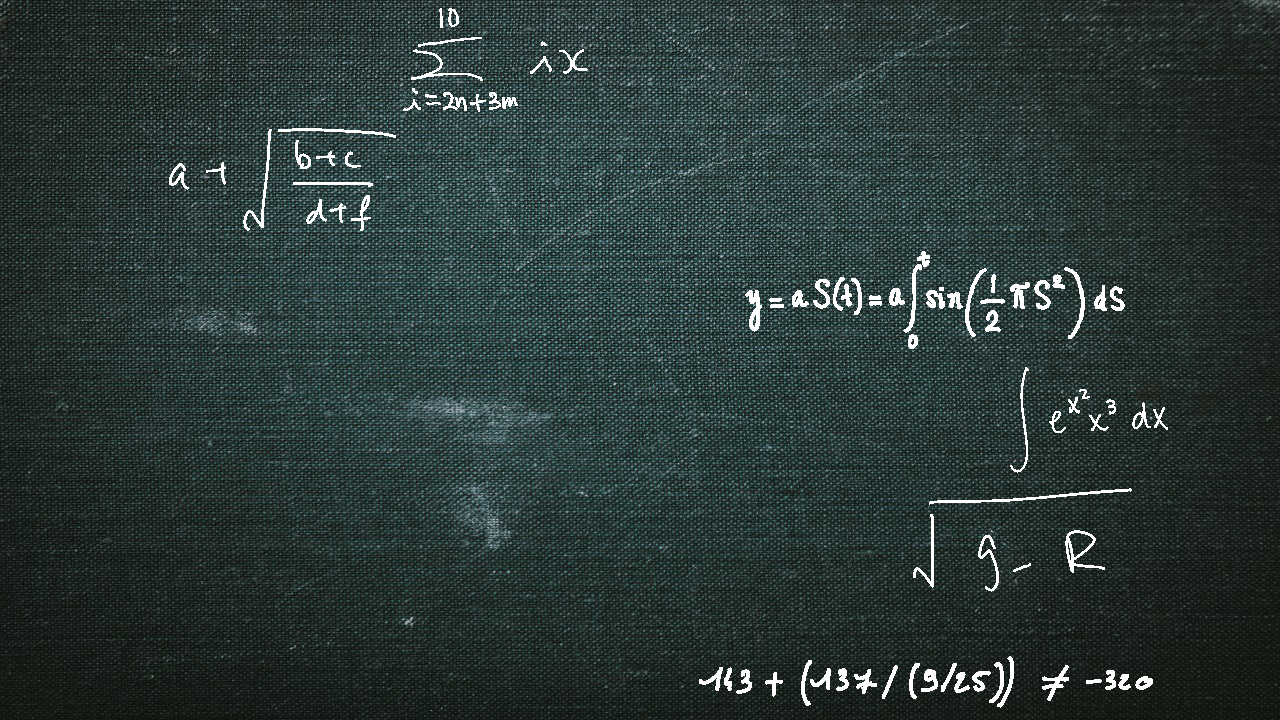 \sum_{i=2n+3m}^{10} ix
a + \sqrt{\frac{b+c}{d+f}}
y = a S(t) = a \int_{0}^{t} \sin\left(\frac{1}{2} \pi S^{2}\right) dS
\int e^{x^{2}} x^{3} dx
\sqrt{g - R}
143 + (137/(9/25)) ≠ -320